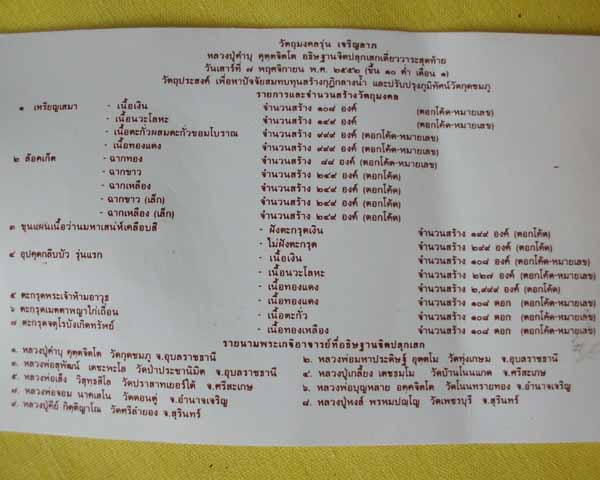 วัตถุมงคลรุ่น เจริญลาภ
หลวงปู่คำบุ คุตฺตจิตโต อธิษฐานจิตปลุกเสกเดี่ยววาระสุดท้าย
วันเสาร์ที่ ๗ พฤศจิกายน พ.ศ. ๒๕๕๒ (ขึ้น ๑๐ ค่ำ เดือน ๑)
วัตถุประสงค์ เพื่อหาปัจจัยสมทบทุนสร้างกุฏิกลางน้ำ และปรับปรุงภูมิทัศน์วัดกุดชมภู
รายการและจำนวนสร้างวัตถุมงคล
๑ เหรียญเสมา - เนื้อเงิน จำนวนสร้าง ๑๐๘ องค์ (ตอกโค้ด-หมายเลข)
- เนื้อนวะโลหะ จำนวนสร้าง ๑๔๙ องค์ (ตอกโค้ด-หมายเลข)
- เนื้อตะกั่วผสมตะกั่วขอมโบราณ จำนวนสร้าง ๙๙๙ องค์ (ตอกโค้ด-หมายเลข)
- เนื้อทองแดง จำนวนสร้าง ๙๙๙ องค์ (ตอกโค้ด-หมายเลข)
๒ ล๊อคเก็ต - ฉากทอง จำนวนสร้าง ๘๘ องค์ (ตอกโค้ด-หมายเลข)
- ฉากขาว จำนวนสร้าง ๒๔๙ องค์ (ตอกโค้ด)
- ฉากเหลือง จำนวนสร้าง ๒๔๙ องค์ (ตอกโค้ด)
- ฉากขาว (เล็ก) จำนวนสร้าง ๒๔๙ องค์ (ตอกโค้ด)
- ฉากเหลือง (เล็ก) จำนวนสร้าง ๒๔๙ องค์ (ตอกโค้ด)
๓ ขุนแผนเนื้อว่านมหาเสน่ห์เคลือบสี - ฝังตะกรุดเงิน จำนวนสร้าง ๑๙๙ องค์ (ตอกโค้ด)
- ไม่ฝังตะกรุด จำนวนสร้าง ๒๙๙ องค์ (ตอกโค้ด)
๔ อุปคุตกลีบบัว รุ่นแรก - เนื้อเงิน จำนวนสร้าง ๑๐๘ องค์ (ตอกโค้ด-หมายเลข)
- เนื้อนวะโลหะ จำนวนสร้าง ๒๒๗ องค์ (ตอกโค้ด-หมายเลข)
- เนื้อทองแดง จำนวนสร้าง ๒,๙๙๙ องค์ (ตอกโค้ด)
๕ ตะกรุดพระเจ้าห้ามอาวุธ - เนื้อทองแดง จำนวนสร้าง ๑๐๘ ดอก (ตอกโค้ด-หมายเลข)
๖ ตะกรุดเมตตาพญาไก่เถื่อน - เนื้อตะกั่ว จำนวนสร้าง ๑๐๘ ดอก (ตอกโค้ด-หมายเลข)
๗ ตะกรุดจตุโรบังเกิดทรัพย์ - เนื้อทองเหลือง จำนวนสร้าง ๑๐๘ ดอก (ตอกโค้ด-หมายเลข)
รายนามพระเกจิอาจารย์ที่อธิษฐานจิตปลุกเสก
๑. หลวงปู่คำบุ คุตฺตจิตโต วัดกุดชมภู จ.อุบลราชธานี ๒. หลวงพ่อมหาประดิษฐ์ อุตฺตโม วัดทุ่งเกษม จ.อุบลราชธานี
๓. หลวงพ่อสุพัฒน์ เตชะพะโล วัดป่าประชานิมิต จ.อุบลราชธานี ๔. หลวงปู่เกลี้ยง เตชธมฺโม วัดบ้านโนนแกด จ.ศรีสะเกษ
๕. หลวงพ่อเส็ง วิสุทธสีโล วัดปราสาทเยอร์ใต้ จ.ศรีสะเกษ ๖. หลวงพ่อบุญหลาย อคฺคจิตโต วัดโนนทรายทอง จ.อำนาจเจริญ
๗. หลวงพ่อจอม นาคเสโน วัดดอนดู่ จ.อำนาจเจริญ ๘. หลวงปู่หงส์ พรหมปญฺโญ วัดเพชรบุรี จ.สุรินทร์
๙. หลวงปู่คีย์ กิตฺติญาโณ วัดศรีลำยอง จ.สุรินทร์